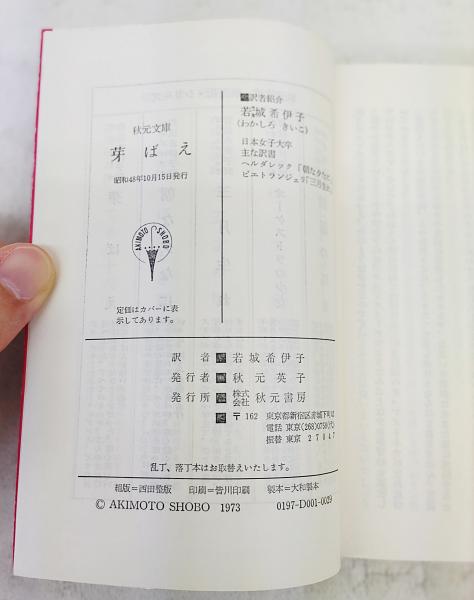 訳者紹介
若城希伊子
(わかしろ きいこ)
日本女子大卒
主な訳書
ヘルダレック「朝な夕な
ピエトランジェリ「三月生
秋元文庫
芽ばえ
昭和48年10月15日発行
AKIMOTO SHOBO
定価はカバーに表
示してあります。
訳者 若城希伊子
発行者 秋元英子
発行所 株式会社 秋元書房
〒162 東京都新宿区赤城下町
電話 東京(268)0759(代)
振替 東京 27047
乱丁、落丁本はお取替えいたします。
組版=西田整版 印刷=皆川印刷 製本=大和製本
© AKIMOTO SHOBO 1973 0197-D001-0029